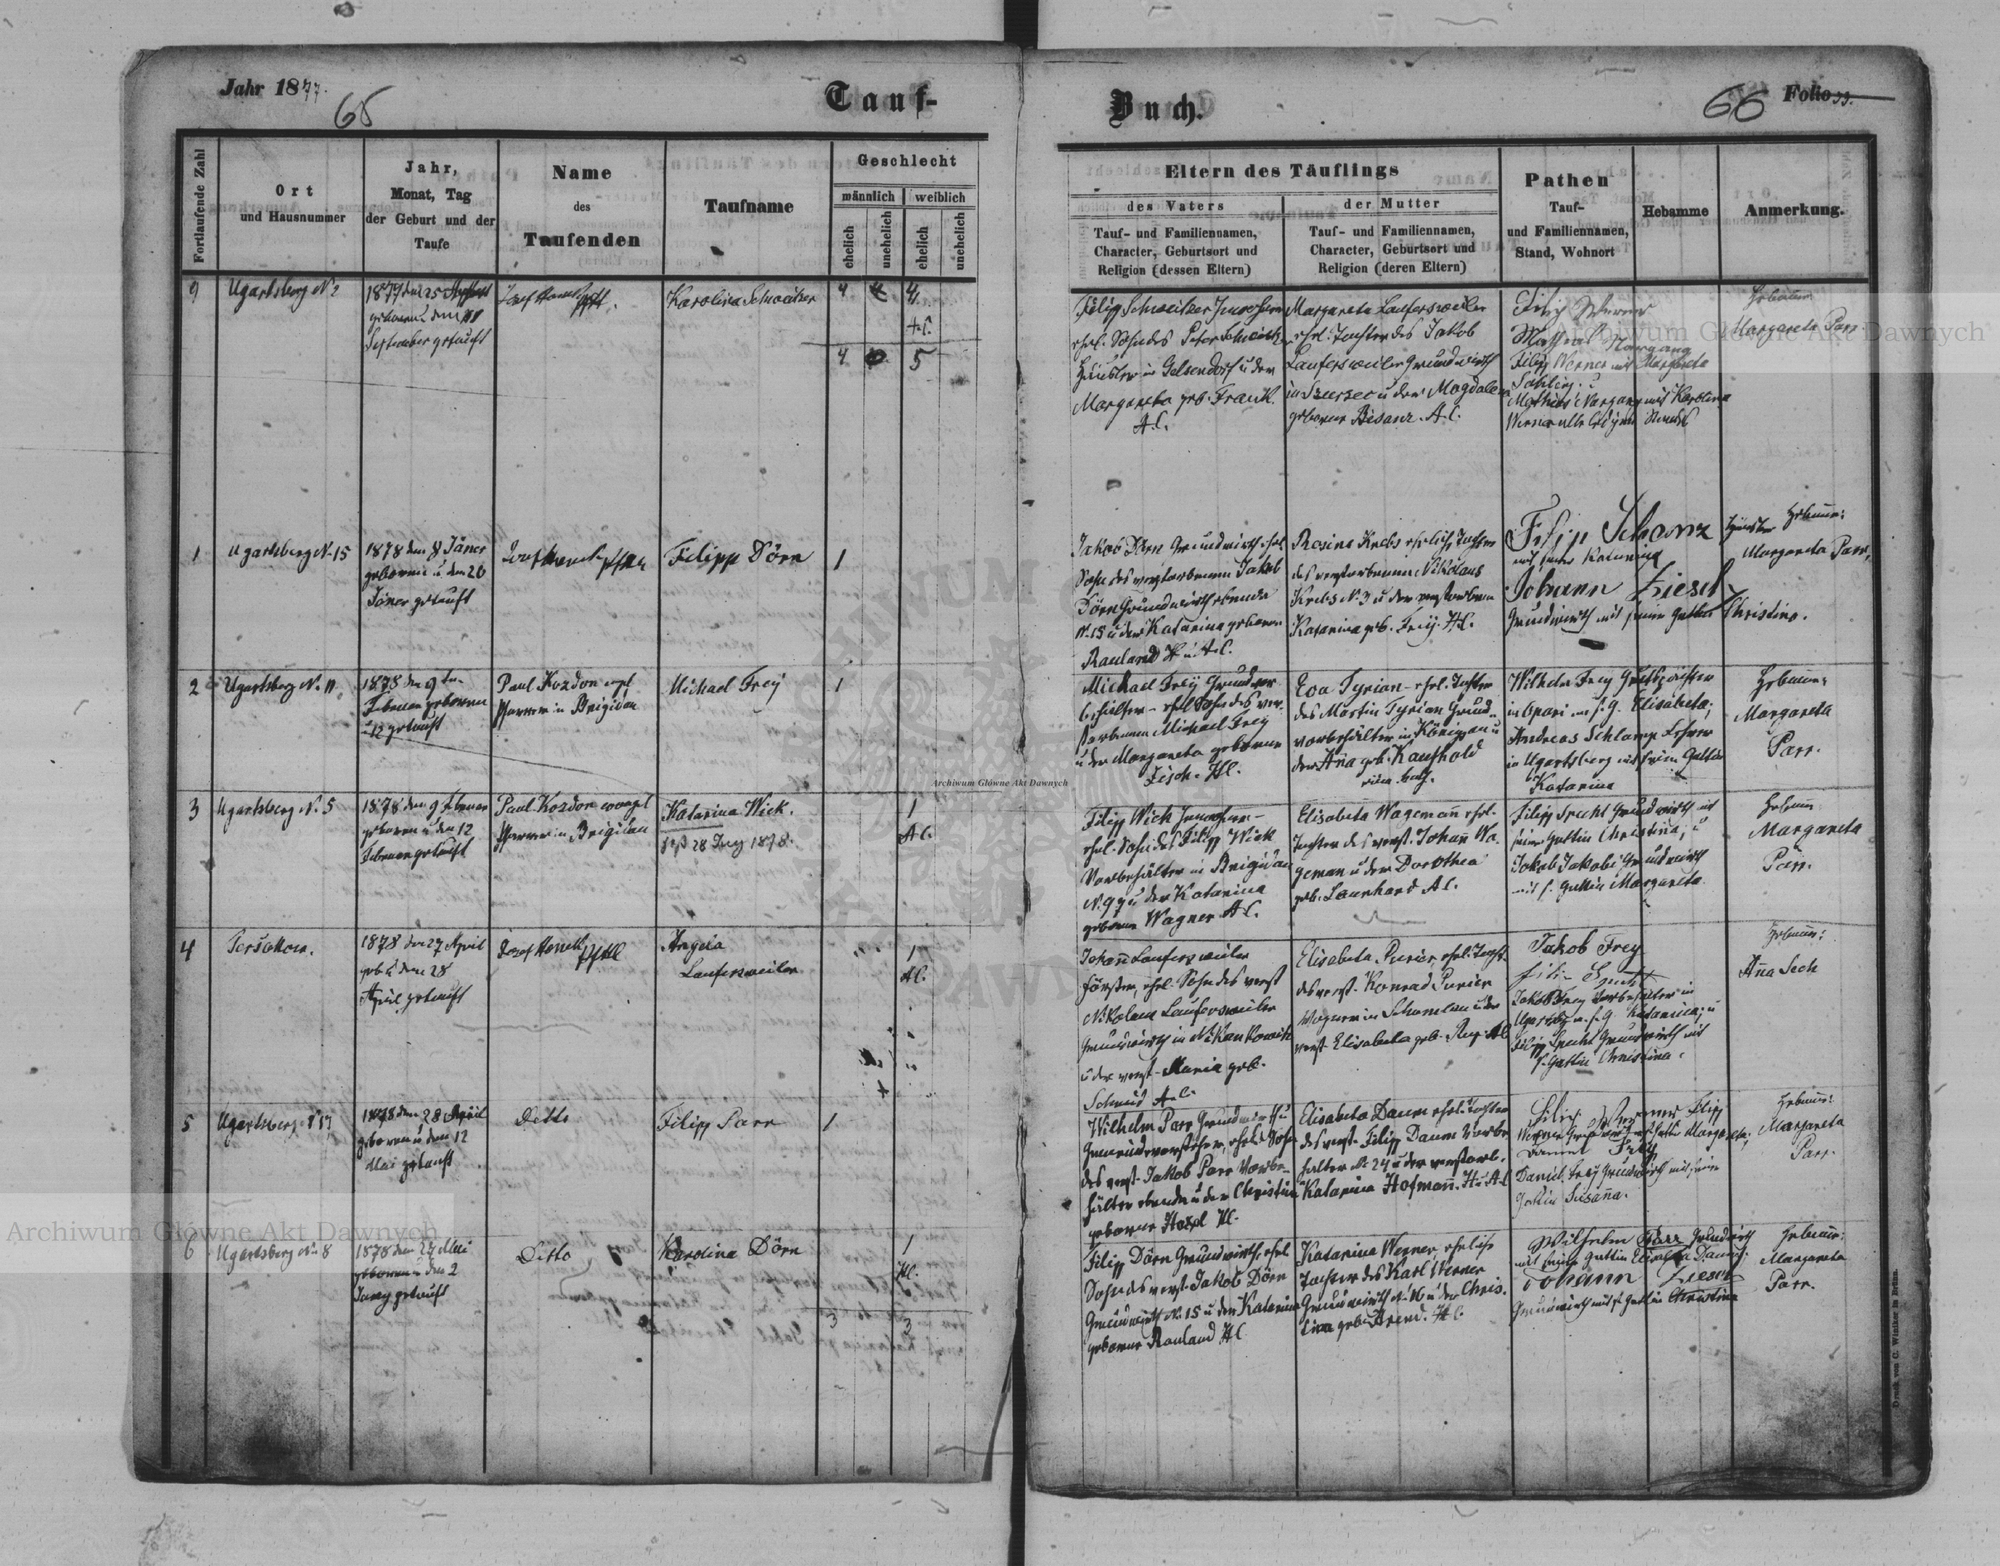 Jahr 1877.
65
Tauf-
Buch.
66
Folio 33.
Fortlaufende Zahl
Ort
und Hausnummer
Jahr,
Monat, Tag
der Geburt und der
Taufe
Name
des
Taufenden
Taufname
Geschlecht
männlich
weiblich
ehelich
unehelich
ehelich
unehelich
Eltern des Täuflings
des Vaters
der Mutter
Tauf- und Familiennamen,
Character, Geburtsort und
Religion (dessen Eltern)
Tauf- und Familiennamen,
Character, Geburtsort und
Religion (deren Eltern)
Pathen
Tauf-
und Familiennamen,
Stand, Wohnort
Hebamme
Anmerkung.
9
Ugartsberg N 2
geboren u. den
September getauft
Karolina Schweitzer
4
4
A.C.
4
5
Filipp Schweitzer
ehel. Sohn des Peter
Häusler in Gelsendorf u der
Margareta geb. Frank.
A.C.
Margareta Laufersweiler
ehel. Tochter des Jakob
Laufersweiler Grundwirth
in Szczerzec u der Magdalena
geborene Bisanz. A.C.
Filipp Werner mit Margareta
Mathias Nargang mit Karolina
Werner alle ledigen Standes
Hebamme
Margareta Parr
1
Ugartsberg N. 15
1878 den 8 Jäner
geboren u den 20
Jäner getauft
Filipp Dörn
1
Jakob Dörn Grundwirth ehel
Sohn des verstorbenen Jakob
Dörn Grundwirth
N. 15 u der Katarina geborene
Rauland
Rosina Krebs eheliche Tochter
des verstorbenen Nikolaus
Krebs N. 3 u der verstorbenen
Katarina geb. Frey. H.C.
Filip Schanz
mit seiner Katarina
Johann Ziesel
Grundwirth mit seiner Gattin Christine.
Hebamme:
Margareta Parr,
2
Ugartsberg N. 11
1878 den 9 ten
Februar geboren
u 12 getauft
Paul Kozdon evgl
Pfarrer in Brigidau
Michael Frey
1
Michael Frey
behälter ehel Sohn des ver-
storbenen Michael Frey
u der Margareta geborene
Fisch. HC.
Eva Tyrian ehel. Tochter
des Martin Tyrian Grund-
vorbehälter in Königsau u
der Aña geb. Kaufhold
Wilhelm Frey
in Opari u. s. G. Elisabeta;
Andreas Schlamp Lehrer
in Ugartsberg mit seiner Gattin
Katarina
Hebamme:
Margareta
Parr.
3
Ugartsberg N. 5
1878 den 9 Februar
geboren u den 12
Februar getauft
Paul Kozdon evangl
Pfarrer in Brigidau
Katarina Wick.
1878.
1
AC.
Filipp Wick
ehel. Sohn des Filipp Wick
Vorbehälter in Brigidau
N. 99 u der Katarina
geborene Wagner A C.
Elisabeta Wagemañ ehel.
Tochter des verst. Johañ Wa-
geman u der Dorothea
geb. Launhard A C.
Filipp Specht Grundwirth mit
seiner Gattin Christina, u
Jakob Jakobi Grundwirth
mit s. Gattin Margareta
Hebamme
Margareta
Parr.
4
1878 den 27 April
geb u den 28
April getauft
Laufersweiler
1
AC.
Johañ Laufersweiler
Förster, ehel. Sohn des verst
Nikolaus Laufersweiler
Grundwirth in
u der verst. Maria geb.
Schmid A.C.
Elisabeta Purier, ehel. Tocht.
des verst. Konrad Purier
Wagner in Schomlau u der
verst. Elisabeta geb. Rup. AC
Jakob Frey
Jakob Frey Vorbehälter in
Ugartsbg u. s. G. Katarina; u
Filipp Specht Grundwirth mit
s. Gattin Christina.
Hebamme:
Aña Sech
5
Ugartsberg N 17
1878 den 28 April
geboren u den 12
Mai getauft
Detto
Filipp Parr
1
Wilhelm Parr Grundwirth u
Gemeindevorsteher, ehel. Sohn
des verst. Jakob Parr Vorbe-
hälter ebenda u der Christina
geborene
Elisabeta Daum ehel. Tochter
des verst. Filipp Daum Vorbe-
halter N. 24 u der verstorb.
Katarina Hofmañ. H u AC
Filip Werner Filipp
Werner Grundwirth mit Gattin Margareta,
Daniel Frey
Daniel Frey Grundwirth mit seiner
Gattin Susaña.
Hebamme:
Margareta
Parr.
6
Ugartsberg No 8
1878 den 24 Mai
geboren u den 2
Juny getauft
Detto
Karolina Dörn
1
HC.
3
3
Filipp Dörn Grundwirth, ehel
Sohn des verst. Jakob Dörn
Grundwirth N. 15 u der Katarina
geborene Rauland HC
Katarina Werner, eheliche
Tochter des Karl Werner
Grundwirth N. 16 u der Chris-
tina geb. Arend. H C
Wilhelm Parr Grundwirth
mit seiner Gattin Elisabeta Daum;
Johann Ziesel
Grundwirth mit s. Gattin Christina
Hebamme:
Margareta
Parr.
Druck von C. Winiker in Brünn.
Archiwum Główne Akt Dawnych
Archiwum Główne Akt Dawnych
Archiwum Główne Akt Dawnych